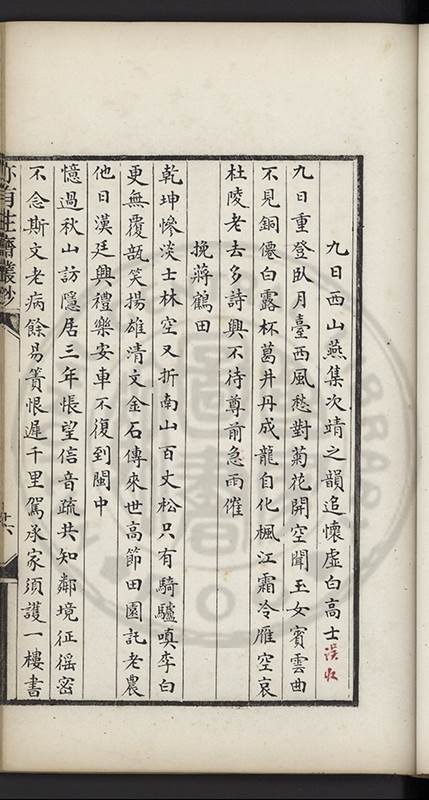 九日西山燕集次靖之韻追懷虛白高士誤收
九日重登臥月臺西風愁對菊花開空聞玉女賓雲曲
不見銅僊白露杯葛井丹成龍自化楓江霜冷雁空哀
杜陵老去多詩興不待尊前急雨催
挽蔣鶴田
乾坤慘淡士林空又折南山百丈松只有騎驢嗔李白
更無覆瓿笑揚雄清文金石傳來世高節田園託老農
他日漢廷興禮樂安車不復到閩中
憶過秋山訪隱居三年悵望信音疏共知鄰境征徭密
不念斯文老病餘易簀恨遲千里駕承家須護一樓書
亦有生齋叢鈔